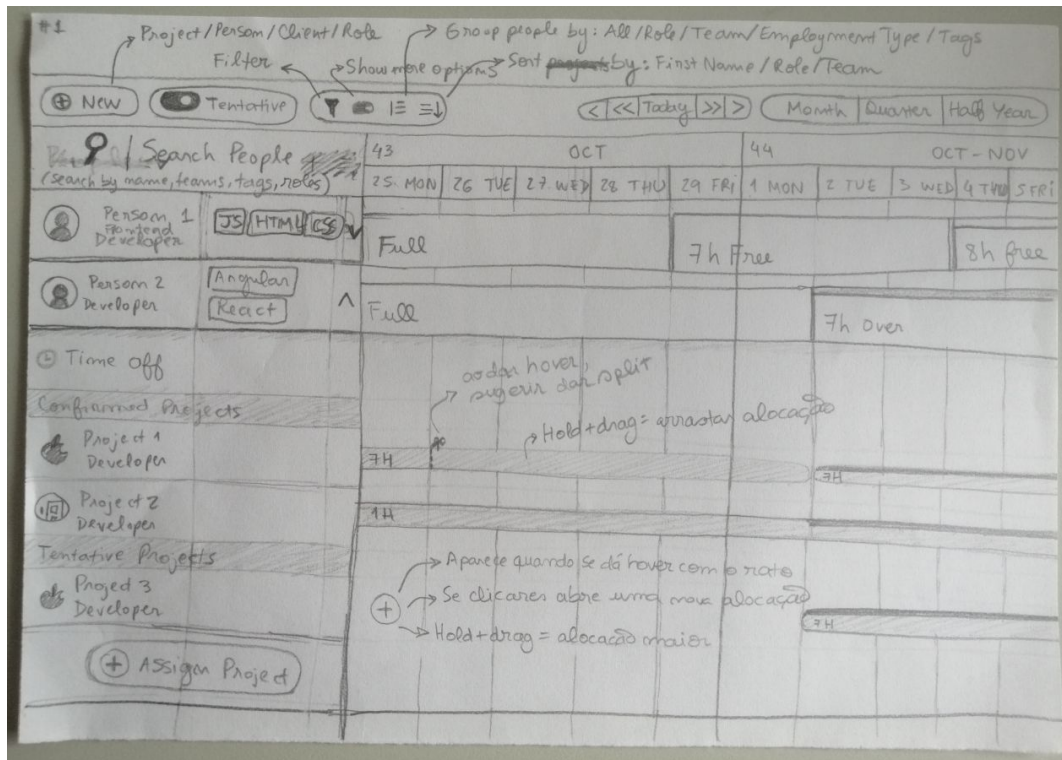 #1
Project/Person/Client/Role
Group people by: All/Role/Team/Employment Type/Tags
Filter
Show more options
Sort projects by: First Name/Role/Team
+ New
Tentative
< | << | Today | >> | >
Month | Quarter | Half Year
Search People
(search by name, teams, tags, roles)
43 OCT 44 OCT - NOV
25 MON 26 TUE 27 WED 28 THU 29 FRI 1 MON 2 TUE 3 WED 4 THU 5 FRI
Person 1
Frontend
Developer
JS HTML CSS
Full
7h Free
8h free
Person 2
Developer
Angular
React
Full
7h Over
Time off
ao dar hover,
sugerir dar split
Confirmed Projects
Hold+drag = arrastar alocação
Project 1
Developer
7H
7H
Project 2
Developer
1H
Tentative Projects
Aparece quando se dá hover com o rato
Projed 3
Developer
Se clicares abre uma nova alocação
Hold+drag = alocação maior
7H
+ Assign Project